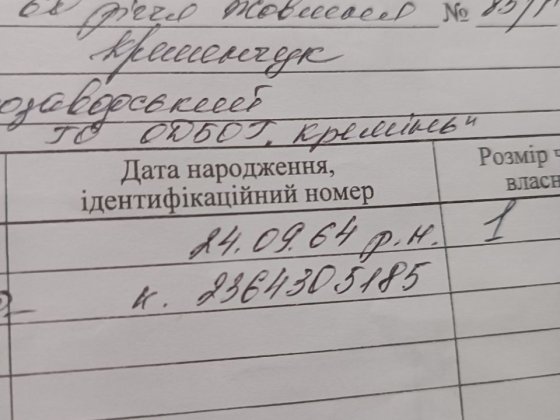 68 річчя Жовтня № 85/1
Кременчук
озаводський
ТО ОДБОТ. Кремінь"
Дата народження, ідентифікаційний номер
Розмір
власн
24.09.64 р.н. 1
к. 2364305185